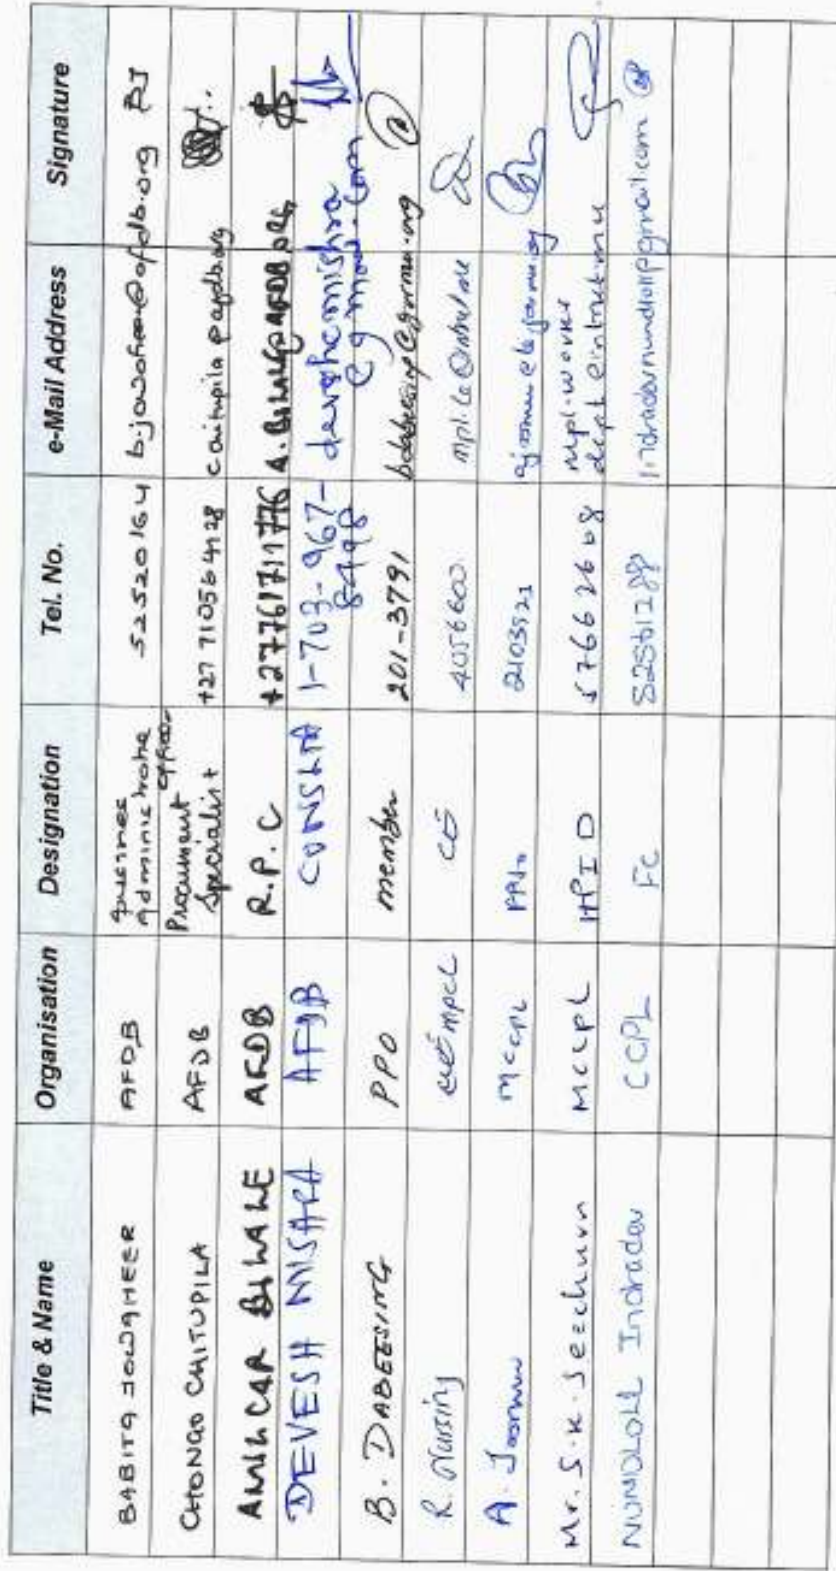 Title & Name Organisation Designation Tel. No. e-Mail Address Signature
BABITA JOWAHEER AFDB Business Administrative Officer 52520164 b.jowaheer@afdb.org BJ
CHONGO CHITUPILA AFDB Procurement Specialist +27 710564128 c.chitupila@afdb.org
AMILCAR BILALE AFDB R.P.C +27761711776 A.BILALE@AFDB.ORG
DEVESH MISHRA AFDB 1-703-967-8498 deveshcmishra@gmail.com
B. DABEESING PPO member 201-3791
R. Nursing CE 4056600
A. Joomun MCCPL 2103521
Mr. S.K. Seechurn MCCPL HPID 57662608
NUNDLOLL Indradev CCPL FC 52561288 indradevnundloll@gmail.com